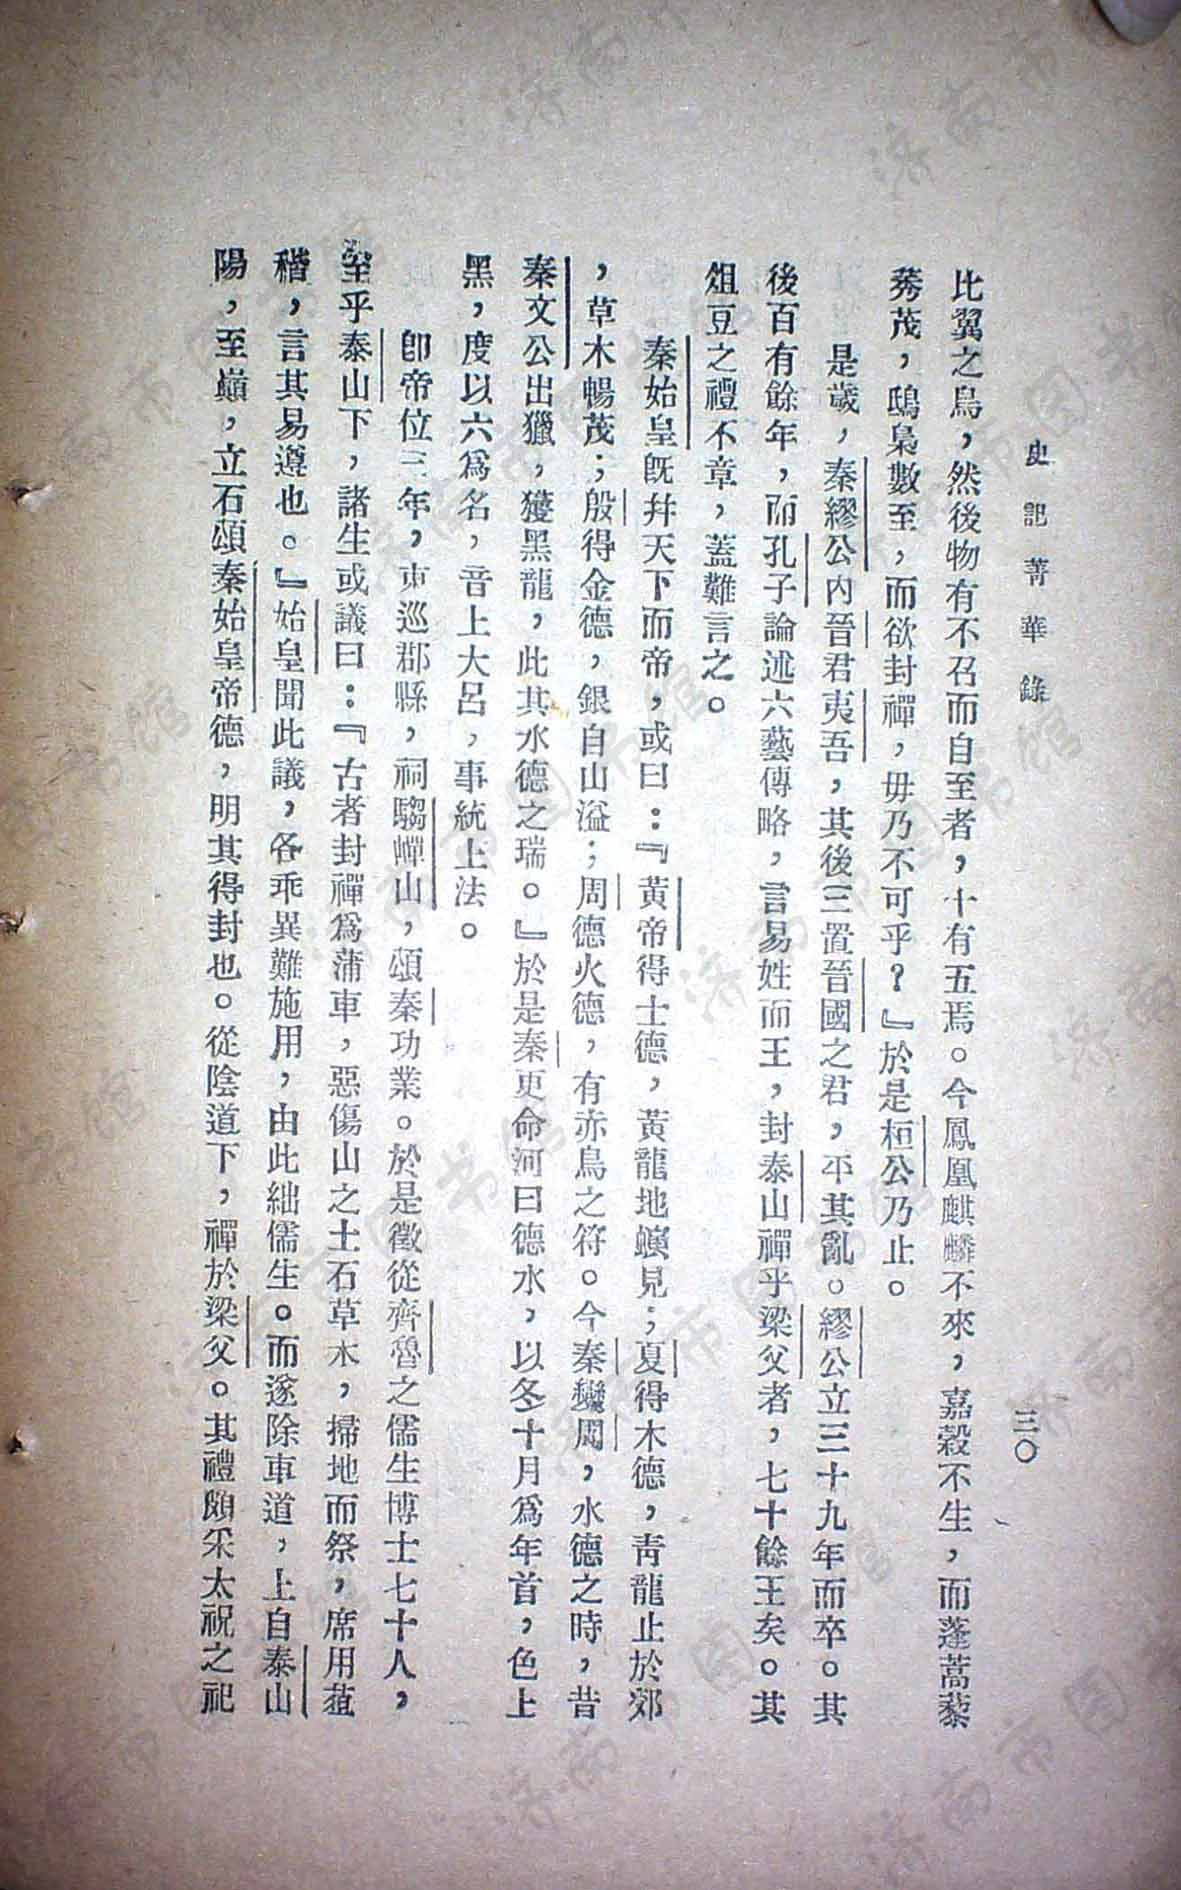 史記菁華錄
三〇
比翼之鳥，然後物有不召而自至者，十有五焉。今鳳凰麒麟不來，嘉穀不生，而蓬蒿藜
莠茂，鴟梟數至，而欲封禪，毋乃不可乎？』於是桓公乃止。
是歲，秦繆公內晉君夷吾，其後三置晉國之君，平其亂。繆公立三十九年而卒。其
後百有餘年，而孔子論述六藝傳略，言易姓而王，封泰山禪乎梁父者，七十餘王矣。其
俎豆之禮不章，蓋難言之。
秦始皇既幷天下而帝，或曰：『黃帝得土德，黃龍地螾見；夏得木德，靑龍止於郊
，草木暢茂；殷得金德，銀自山溢；周德火德，有赤烏之符。今秦變周，水德之時，昔
秦文公出獵，獲黑龍，此其水德之瑞。』於是秦更命河曰德水，以冬十月爲年首，色上
黑，度以六爲名，音上大呂，事統上法。
卽帝位三年，東巡郡縣，祠騶嶧山，頌秦功業。於是徵從齊魯之儒生博士七十人，
至乎泰山下，諸生或議曰：『古者封禪爲蒲車，惡傷山之土石草木，掃地而祭，席用葅
稭，言其易遵也。』始皇聞此議，各乖異難施用，由此絀儒生。而遂除車道，上自泰山
陽，至巔，立石頌秦始皇帝德，明其得封也。從陰道下，禪於梁父。其禮頗采太祝之祀
济南市图书馆